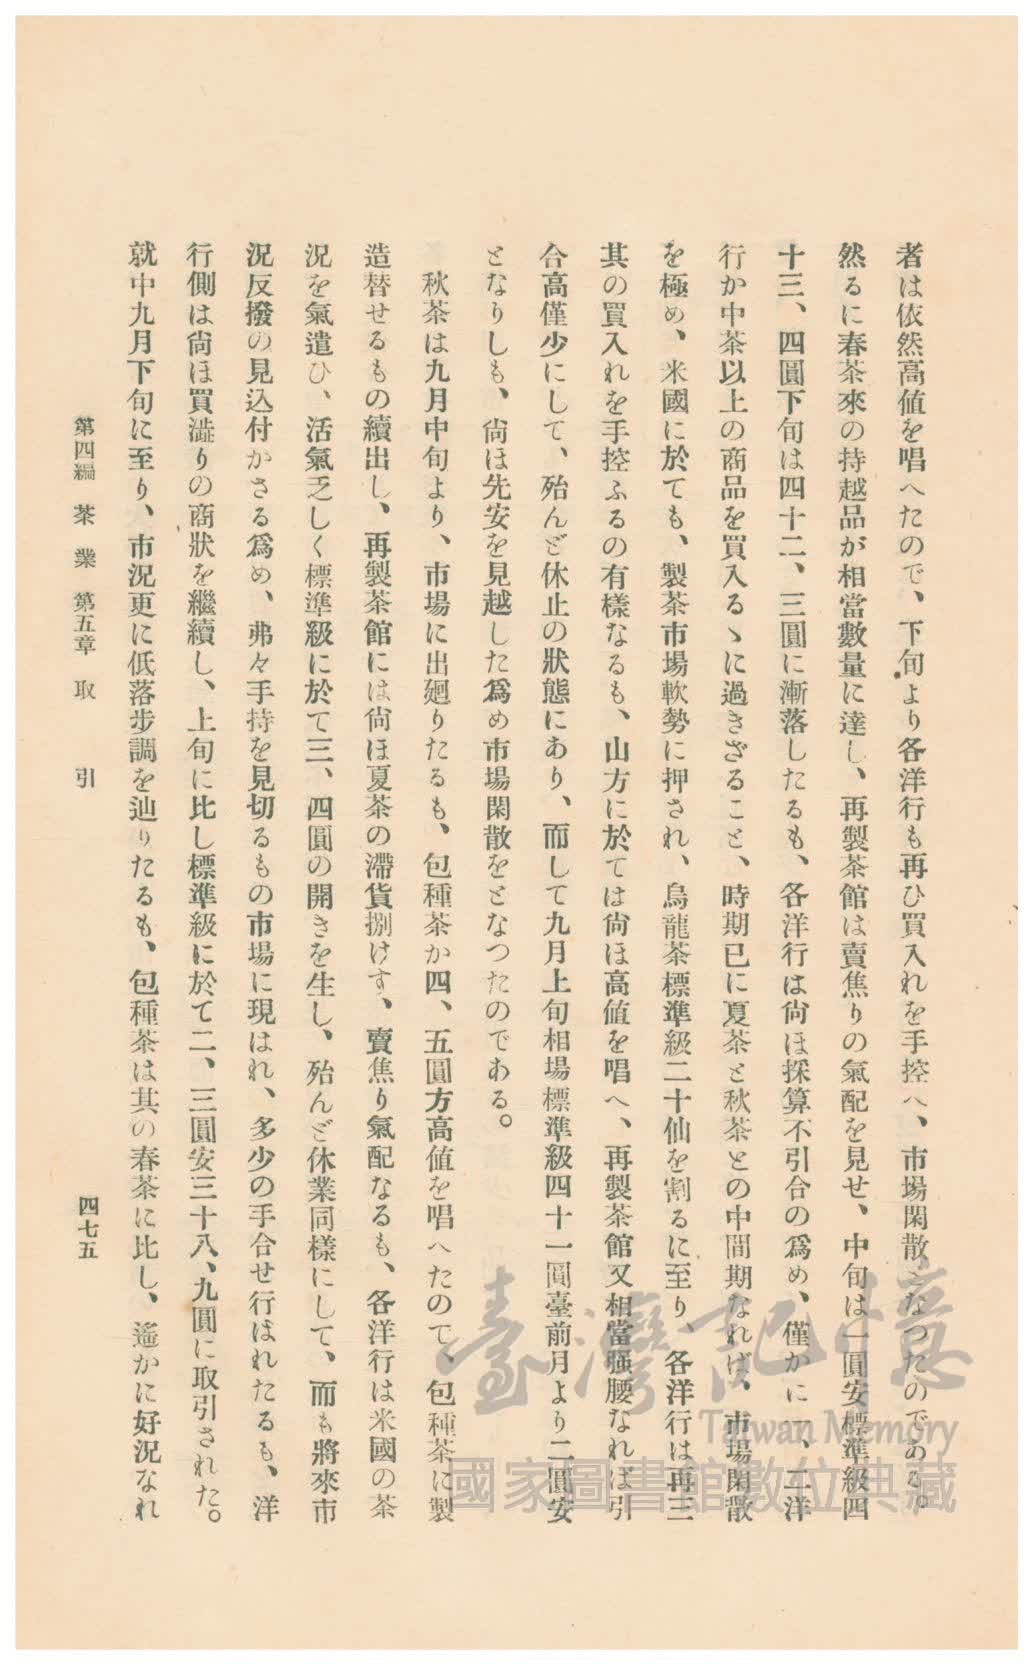 者は依然高値を唱へたので、下旬より各洋行も再ひ買入れを手控へ、市場閑散となつたのである。
然るに春茶來の持越品が相當數量に達し、再製茶館は賣焦りの氣配を見せ、中旬は一圓安標準級四
十三、四圓下旬は四十二、三圓に漸落したるも、各洋行は尙ほ採算不引合の爲め、僅かに一、二洋
行か中茶以上の商品を買入るゝに過きざること、時期已に夏茶と秋茶との中間期なれば、市場閑散
を極め、米國に於ても、製茶市場軟勢に押され、烏龍茶標準級二十仙を割るに至り、各洋行は再三
其の買入れを手控ふるの有樣なるも、山方に於ては尙ほ高値を唱へ、再製茶館又相當强腰なれば引
合高僅少にして、殆んど休止の狀態にあり、而して九月上旬相場標準級四十一圓臺前月より二圓安
となりしも、尙ほ先安を見越した爲め市場閑散をとなつたのである。
秋茶は九月中旬より、市場に出廻りたるも、包種茶か四、五圓方高値を唱へたので、包種茶に製
造替せるもの續出し、再製茶館には尙ほ夏茶の滯貨捌けず、賣焦り氣配なるも、各洋行は米國の茶
況を氣遣ひ、活氣乏しく標準級に於て三、四圓の開きを生し、殆んど休業同樣にして、而も將來市
況反撥の見込付かさる爲め、弗々手持を見切るもの市場に現はれ、多少の手合せ行はれたるも、洋
行側は尙ほ買澁りの商狀を繼續し、上旬に比し標準級に於て二、三圓安三十八、九圓に取引された。
就中九月下旬に至り、市況更に低落步調を辿りたるも、包種茶は其の春茶に比し、遙かに好況なれ
第四編 茶業 第五章 取引
四七五
臺灣記憶
Taiwan Memory
國家圖書館數位典藏